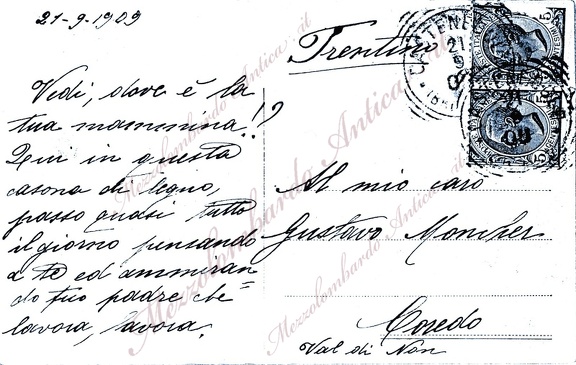 21-9-1909
Vedi, dove è la
tua mammina!?
Qui in questa
casona di legno,
passo quasi tutto
il giorno pensando
a te ed ammiran=
do tuo padre che
lavora, lavora.
Trentino
Al mio caro
Gustavo Moncher
Coredo
Val di Non
21
9
09
5
5
Mezzolombardo Antica .it
Mezzolombardo Antica .it
Mezzolombardo Antica .it